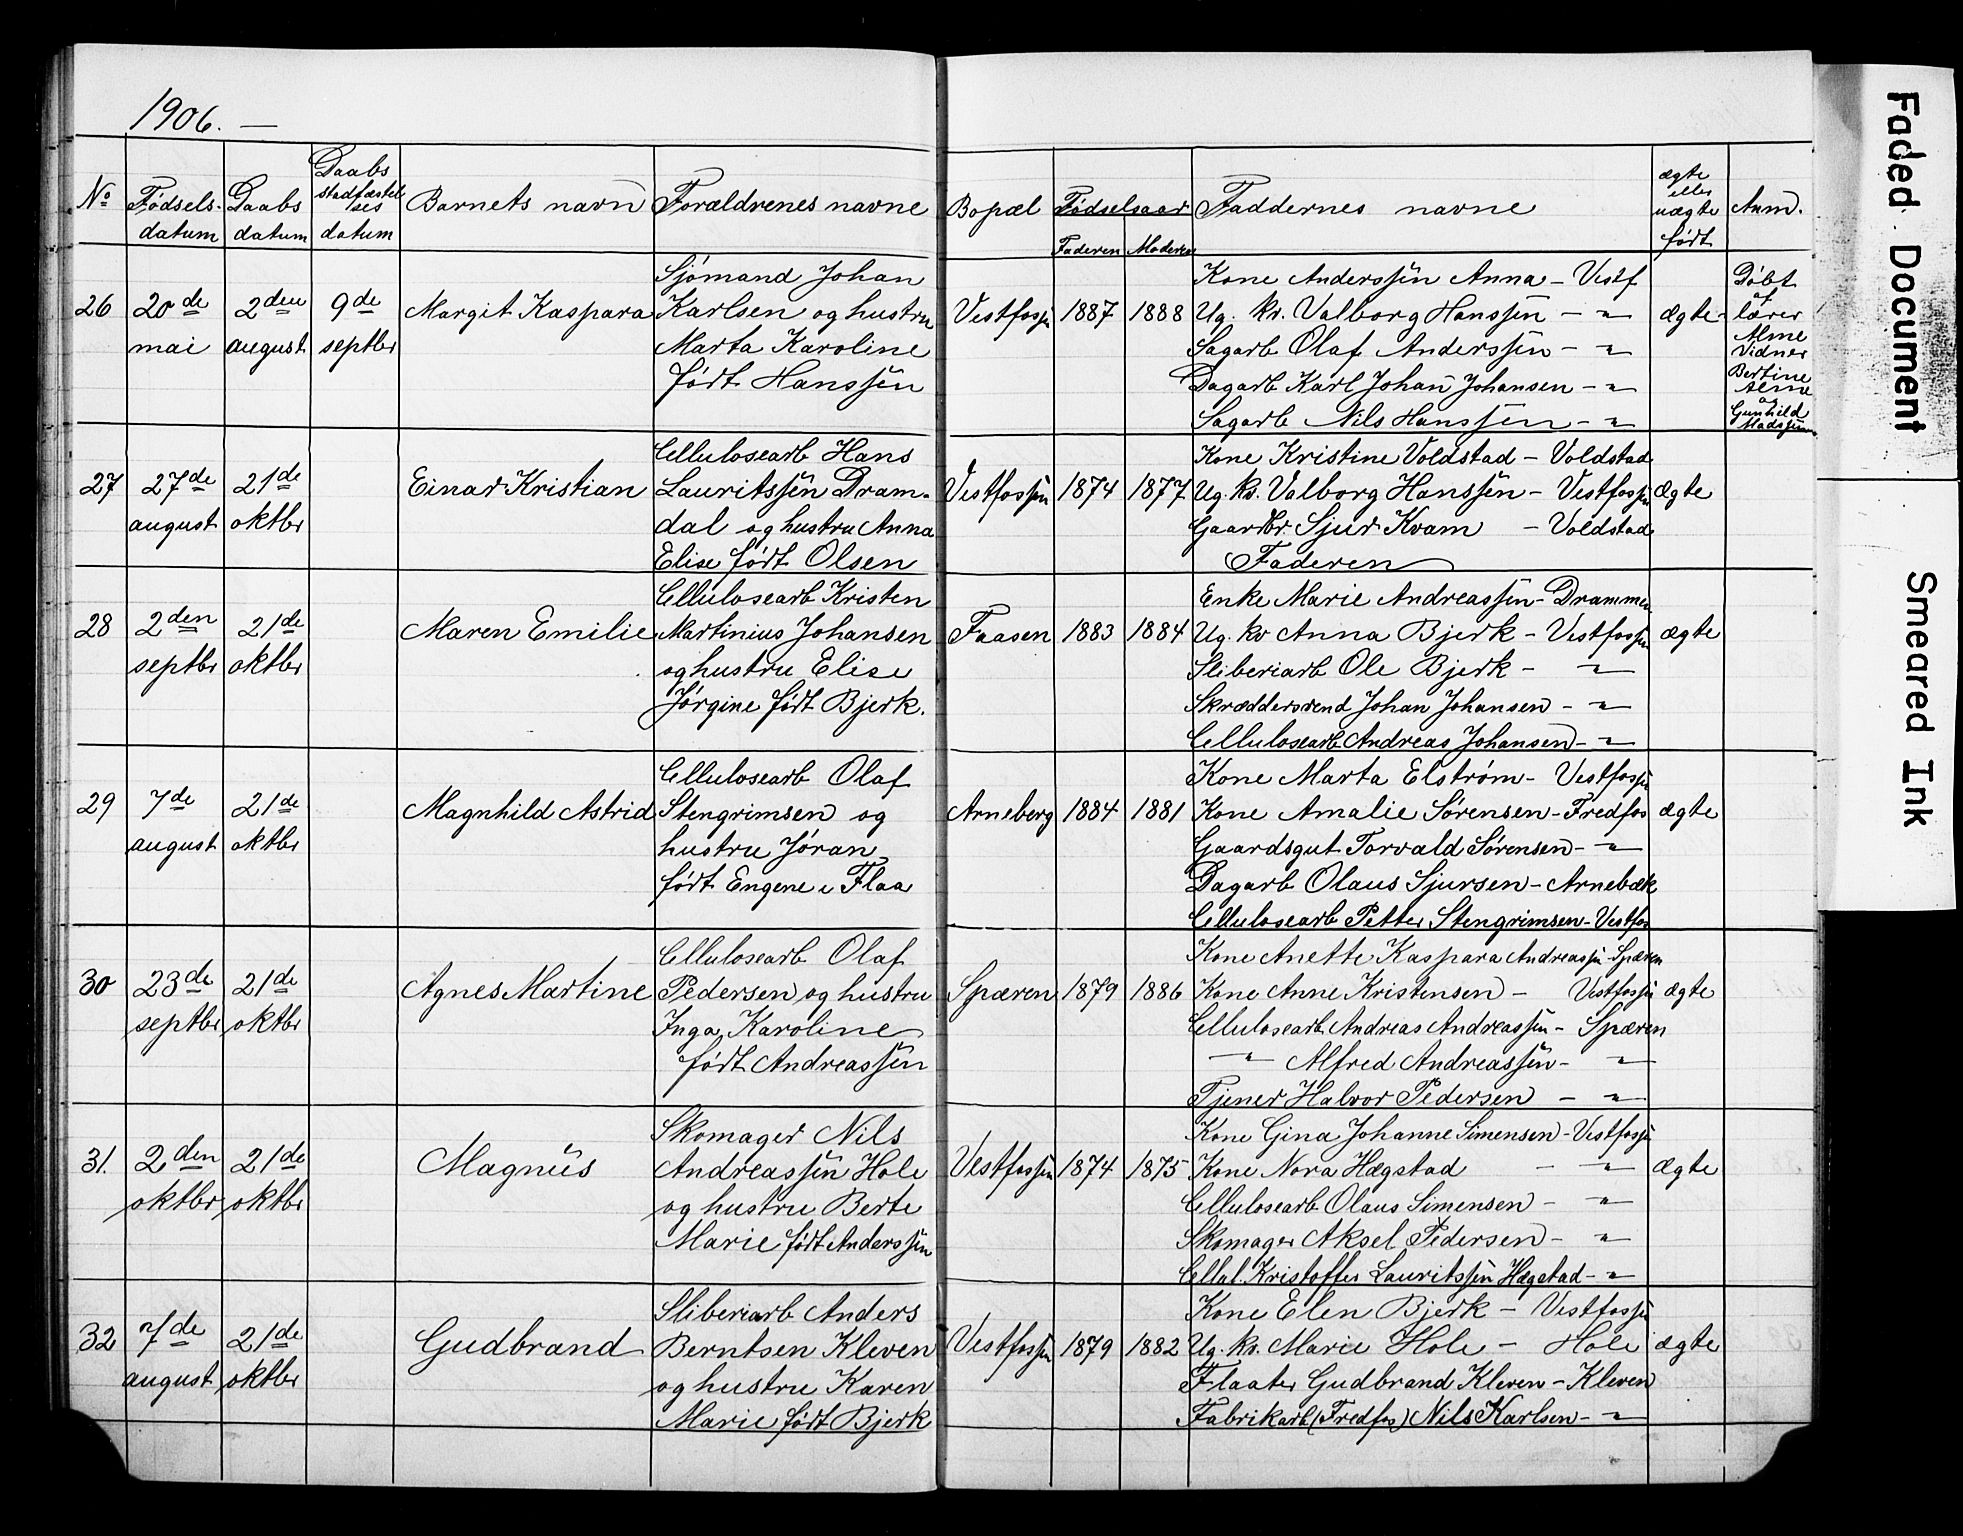 1906. —
No Fødsels- datum Daabs datum Daabs stadfæstel ses datum Barnets navn Forældrenes navne Bopæl Fødselsaar Faderen Moderen Faddernes navne ægte eller uægte født Anm.
26 20de mai 2den august 9de septbr Margit Kaspara
Sjømand Johan
Karlsen og hustru
Marta Karoline
født Hanssen
Vestfossen 1887 1888
Kone Anderssen Anna – Vestf
Ug. kv. Valborg Hanssen – "
Sagarb Olaf Anderssen – "
Dagarb Karl Johan Johansen – "
Sagarb Nils Hanssen – "
ægte
Døbt
af
lærer
Alme
Vidner
Bertine
Alme
og
Gunhild
Madssen
27 27de august 21de oktbr Einar Kristian
Cellulosearb Hans
Lauritssen Dram-
dal og hustru Anna
Elise født Olsen
Vestfossen 1874 1877
Kone Kristine Voldstad – Voldstad
Ug. kv. Valborg Hanssen – Vestfossen
Gaardbr. Sjur Kvam – Voldstad
Faderen
Ægte
28 2den septbr 21de oktbr Maren Emilie
Cellulosearb Kristen
Martinius Johansen
og hustru Elise
Jørgine født Bjerk.
Faasen 1883 1884
Enke Marie Andreassen – Drammen
Ug. kv Anna Bjerk – Vestfossen
Sliberiarb Ole Bjerk – "
Skræddersvend Johan Johansen – "
Cellulosearb Andreas Johansen – "
ægte
29 7de august 21de oktbr Magnhild Astrid
Cellulosearb Olaf
Stengrimsen og
hustru Jøran
født Engene i Flaa
Arneberg 1884 1881
Kone Marta Elstrøm – Vestfossen
Kone Amalie Sørensen – Fredfos
Gaardsgut Torvald Sørensen – "
Dagarb Olaus Sjursen – Arnebæk
Cellulosearb Petter Stengrimsen – Vestfos
ægte
30 23de septbr 21de oktbr Agnes Martine
Cellulosearb Olaf
Pedersen og hustru
Inga Karoline
født Andreassen
Spæren 1879 1886
Kone Anette Kaspara Andreassen – Spæren
Kone Anne Kristensen – Vestfossen
Cellulosearb Andreas Andreassen – Spæren
" Alfred Andreassen – "
Tjener Halvor Pedersen – "
ægte
31. 2den oktbr 21de oktbr Magnus
Skomager Nils
Andreassen Hole
og hustru Berte
Marie født Anderssen
Vestfossen 1874 1875
Kone Gina Johanne Simensen – Vestfossen
Kone Nora Hægstad – "
Cellulosearb Olaus Simensen – "
Skomager Aksel Pedersen – "
Cellul. Kristoffer Lauritssen Hægstad – "
ægte
32 7de august 21de oktbr Gudbrand
Sliberiarb Anders
Berntsen Kleven
og hustru Karen
Marie født Bjerk
Vestfossen 1879 1882
Kone Elen Bjerk – Vestfossen
Ug. kv. Marie Hole – Hole
Flaater Gudbrand Kleven – Kleven
Fabrikarb (Fredfos) Nils Karlsen – "
ægte
Faded Document
Smeared Ink